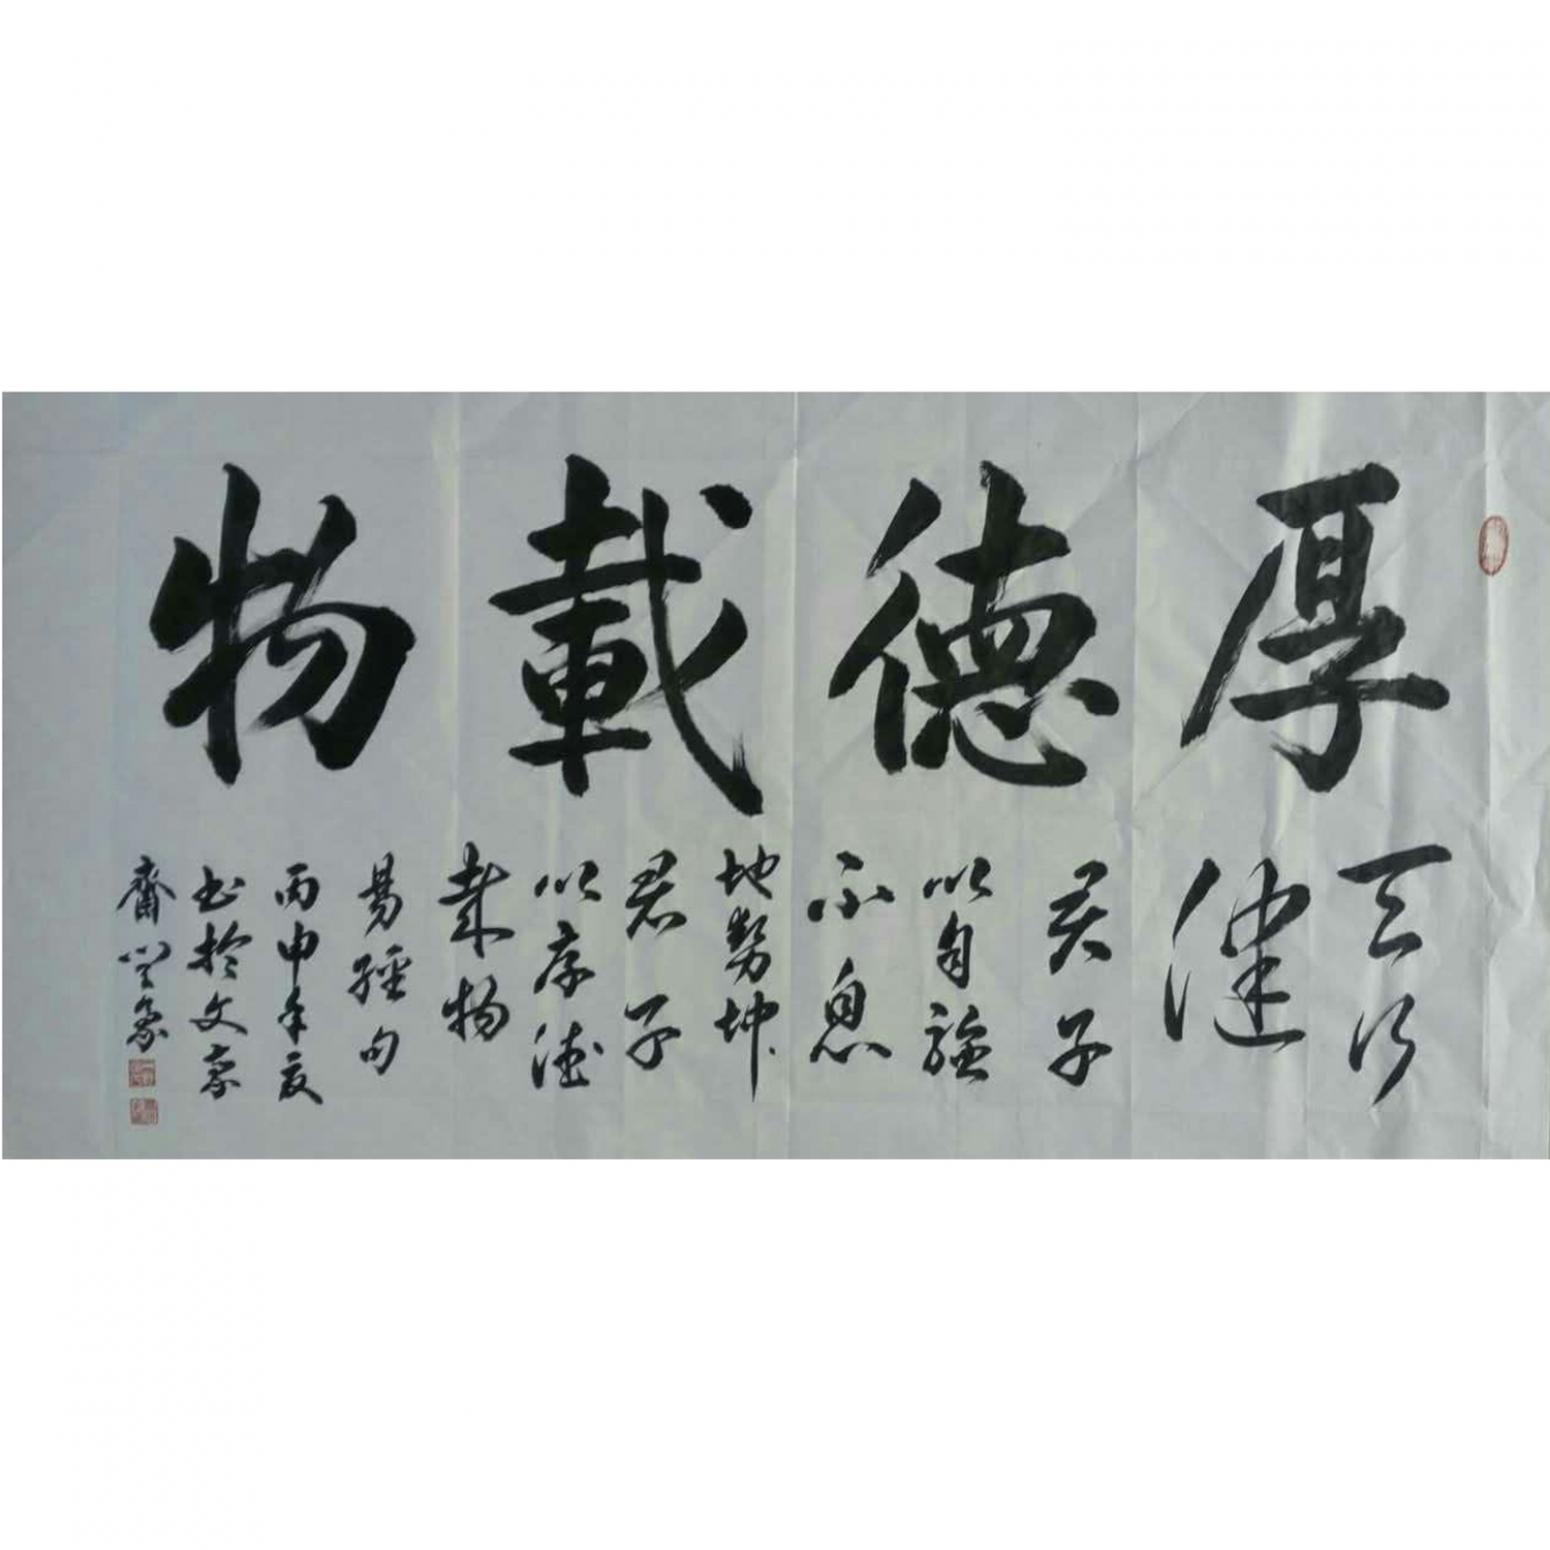 厚德載物
天行
健
君子
以自強
不息
地勢坤
君子
以厚德
載物
易經句
丙申年夏
書於文
齋